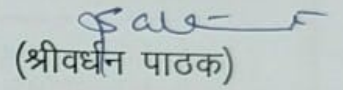 (श्रीवर्धन पाठक)